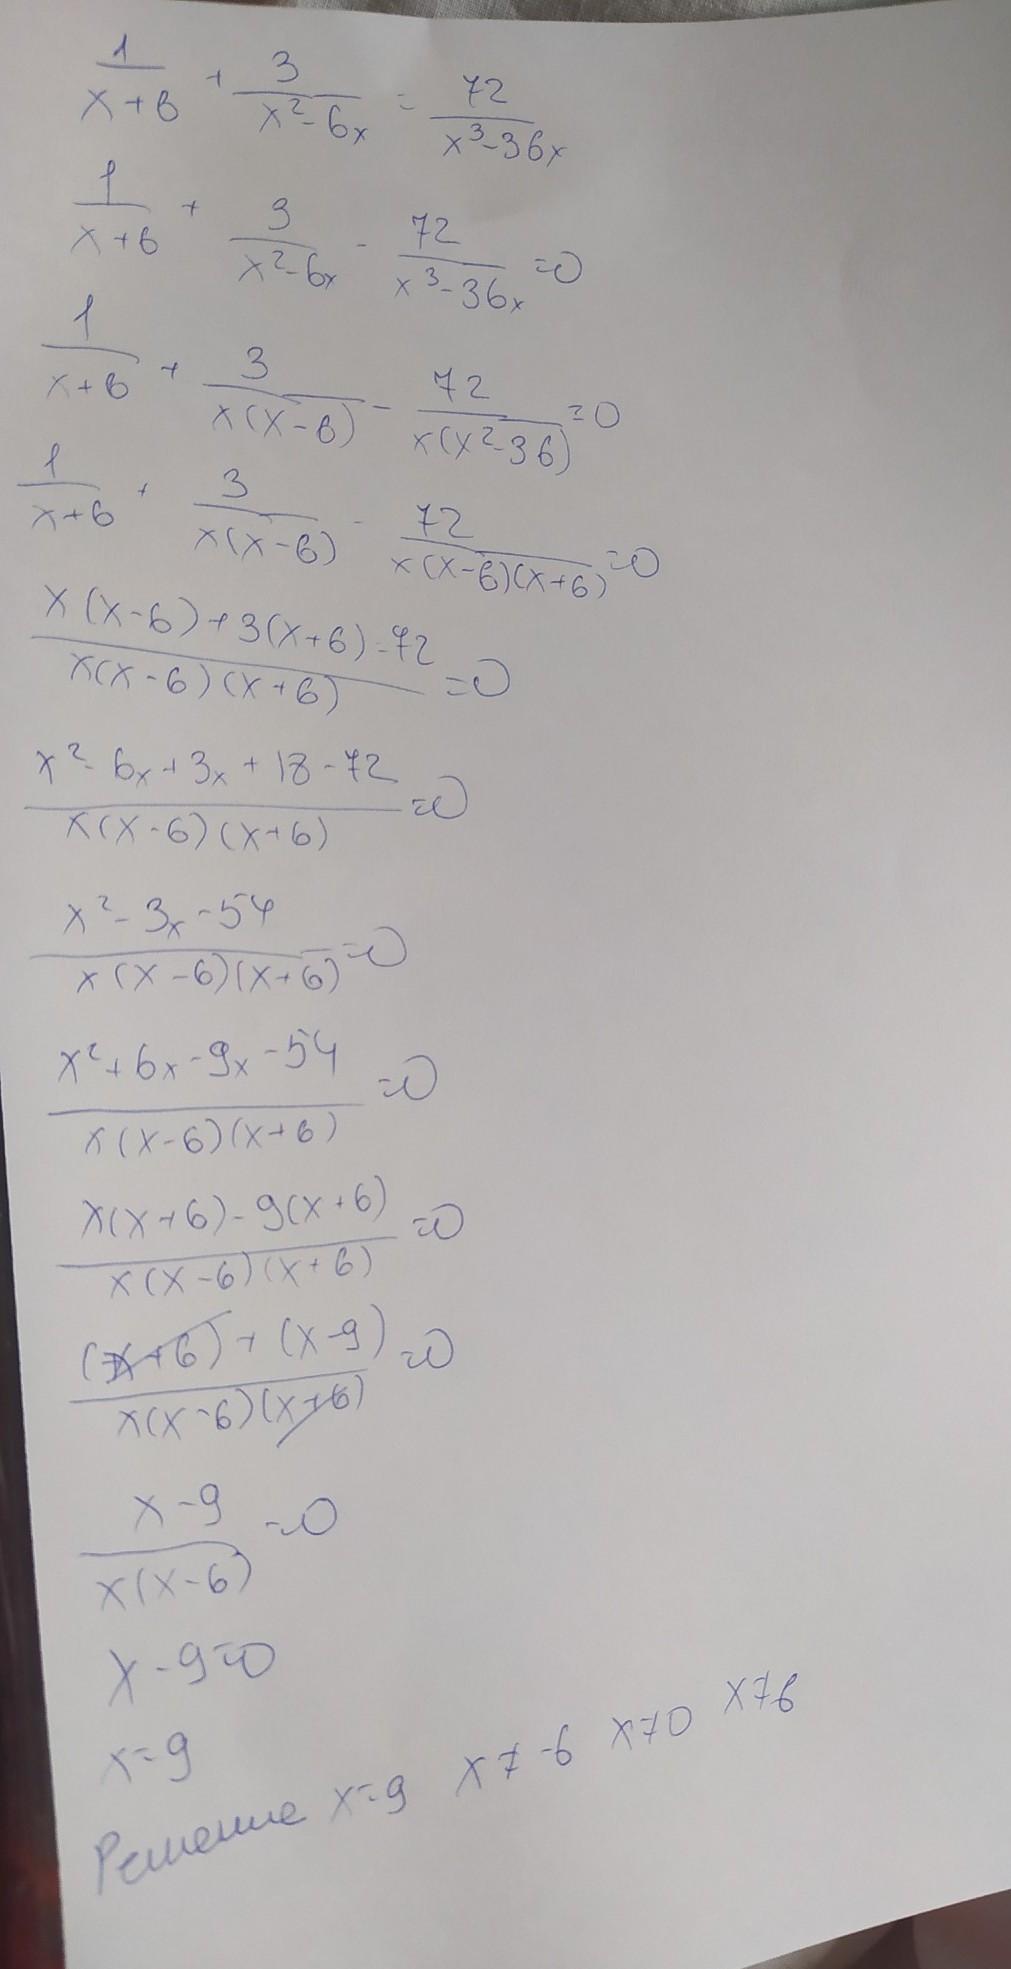 1/(x+6) + 3/(x²-6x) = 72/(x³-36x)
1/(x+6) + 3/(x²-6x) - 72/(x³-36x) =0
1/(x+6) + 3/(x(x-6)) - 72/(x(x²-36)) =0
1/(x+6) + 3/(x(x-6)) - 72/(x(x-6)(x+6)) =0
(x(x-6)+3(x+6)-72)/(x(x-6)(x+6)) =0
(x²-6x+3x+18-72)/(x(x-6)(x+6)) =0
(x²-3x-54)/(x(x-6)(x+6)) =0
(x²+6x-9x-54)/(x(x-6)(x+6)) =0
(x(x+6)-9(x+6))/(x(x-6)(x+6)) =0
((x+6)+(x-9))/(x(x-6)(x+6)) =0
(x-9)/(x(x-6)) =0
x-9=0
x=9
Решение x=9 x≠-6 x≠0 x≠6